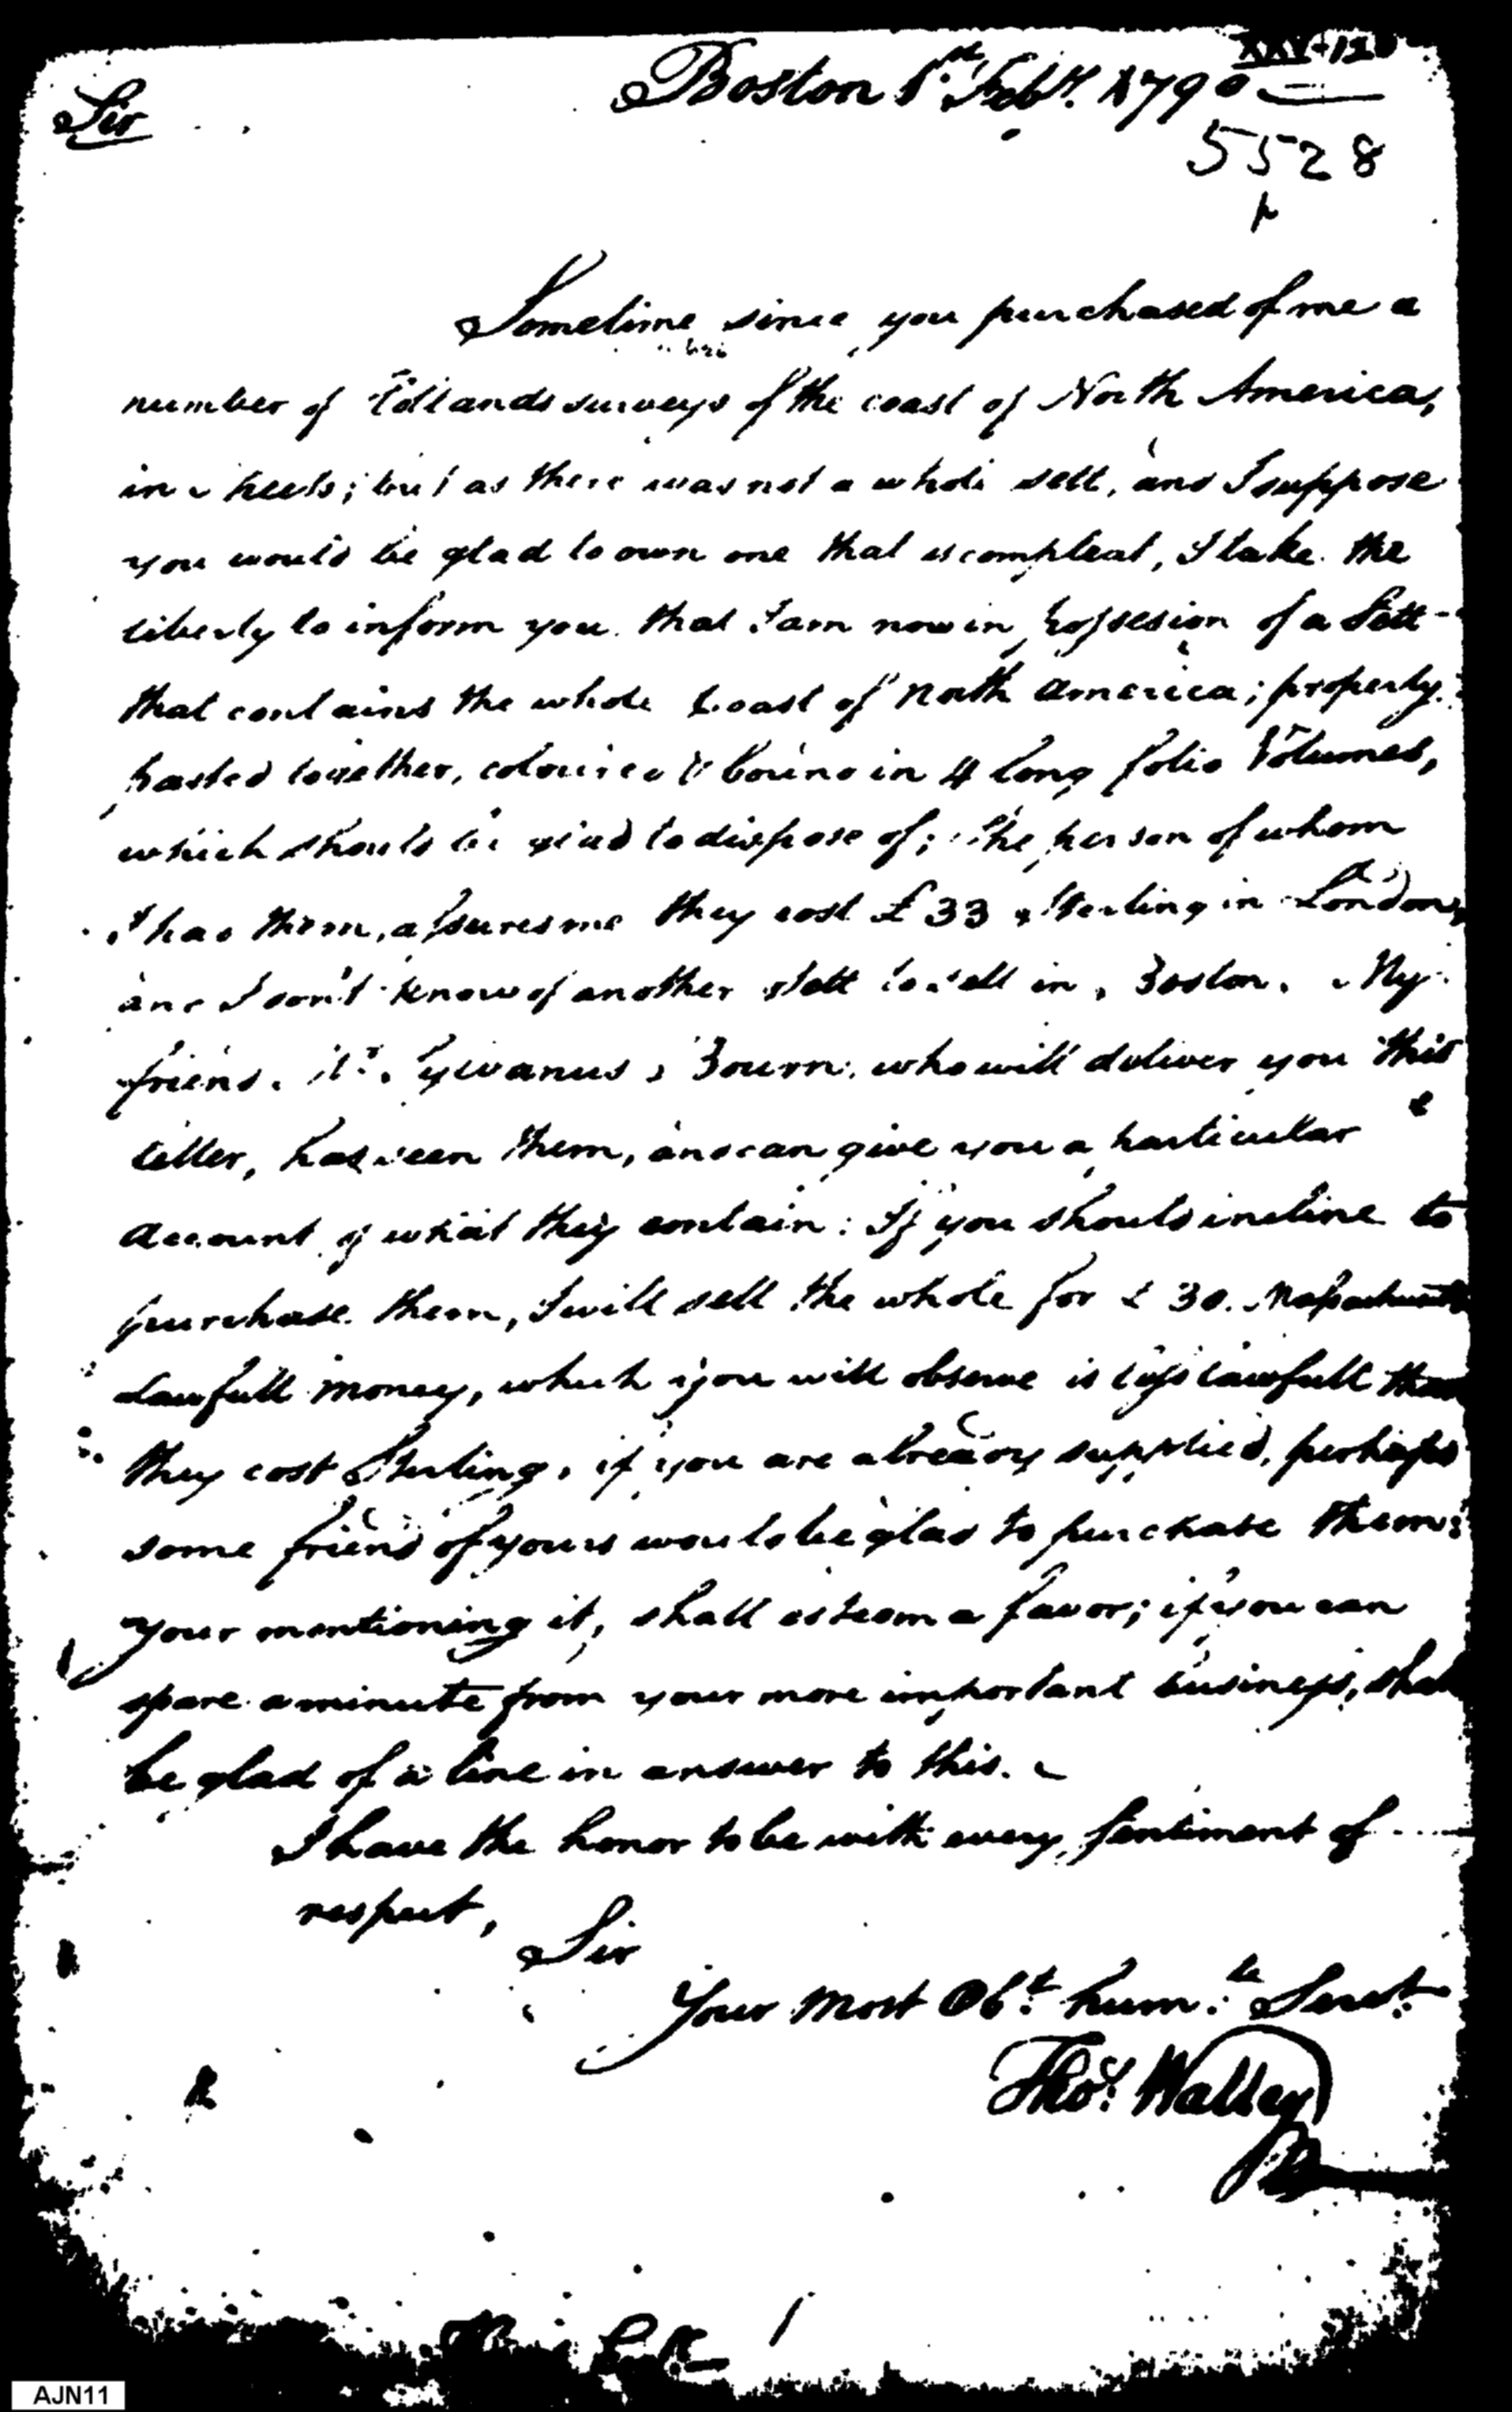 Boston 1st Feby. 1790
Sir
5528
Sometime since you purchased of me a
number of Hollands surveys of the coast of North America,
in sheets; but as there was not a whole sett, and I suppose
you would be glad to own one that is compleat, I take the
liberty to inform you that I am now in possesion of a Sett
that contains the whole Coast of North America; properly
pasted together, coloured & bound in 4 long folio Volumes,
which should be glad to dispose of; the person of whom
I had them, assures me they cost £33 Sterling in London,
and I don't know of another sett to sell in Boston. My
friend Mr. Sylvanus Bourn, who will deliver you this
letter, has seen them, and can give you a particular
account of what they contain: If you should incline to
purchase them, I will sell the whole for £30. Massachusetts
Lawfull money, which you will observe is less lawfull than
they cost Sterling, if you are already supplied, perhaps
some friend of yours would be glad to purchase them:
your mentioning it, shall esteem a favor; if you can
spare a minute from your more important business, shall
be glad of a line in answer to this.
I have the honor to be with every sentiment of
respect,
Sir
Your most Obt. humle. Servt.
Thos. Walley
AJN11